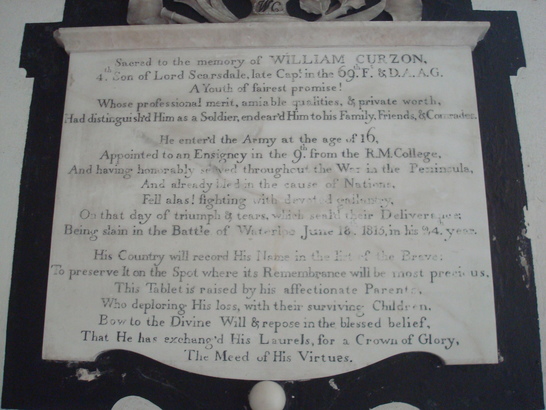 Sacred to the memory of WILLIAM CURZON,
4th Son of Lord Scarsdale, late Capt. in the 69th F. & D.A.A.G.
A Youth of fairest promise!
Whose professional merit, amiable qualities, & private worth,
Had distinguish'd Him as a Soldier, endear'd Him to his Family, Friends, & Comrades.
He enter'd the Army at the age of 16,
Appointed to an Ensigncy in the 9th from the R.M. College,
And having honorably served throughout the War in the Peninsula,
And already bled in the cause of Nations,
Fell alas! fighting with devoted gallantry,
On that day of triumph & tears, which seal'd their Deliverance;
Being slain in the Battle of Waterloo June 18, 1815, in his 24. year.
His Country will record His Name in the list of the Brave;
To preserve It on the Spot where its Remembrance will be most precious,
This Tablet is raised by his affectionate Parents,
Who deploring His loss, with their surviving Children,
Bow to the Divine Will & repose in the blessed belief,
That He has exchang'd His Laurels, for a Crown of Glory,
The Meed of His Virtues.